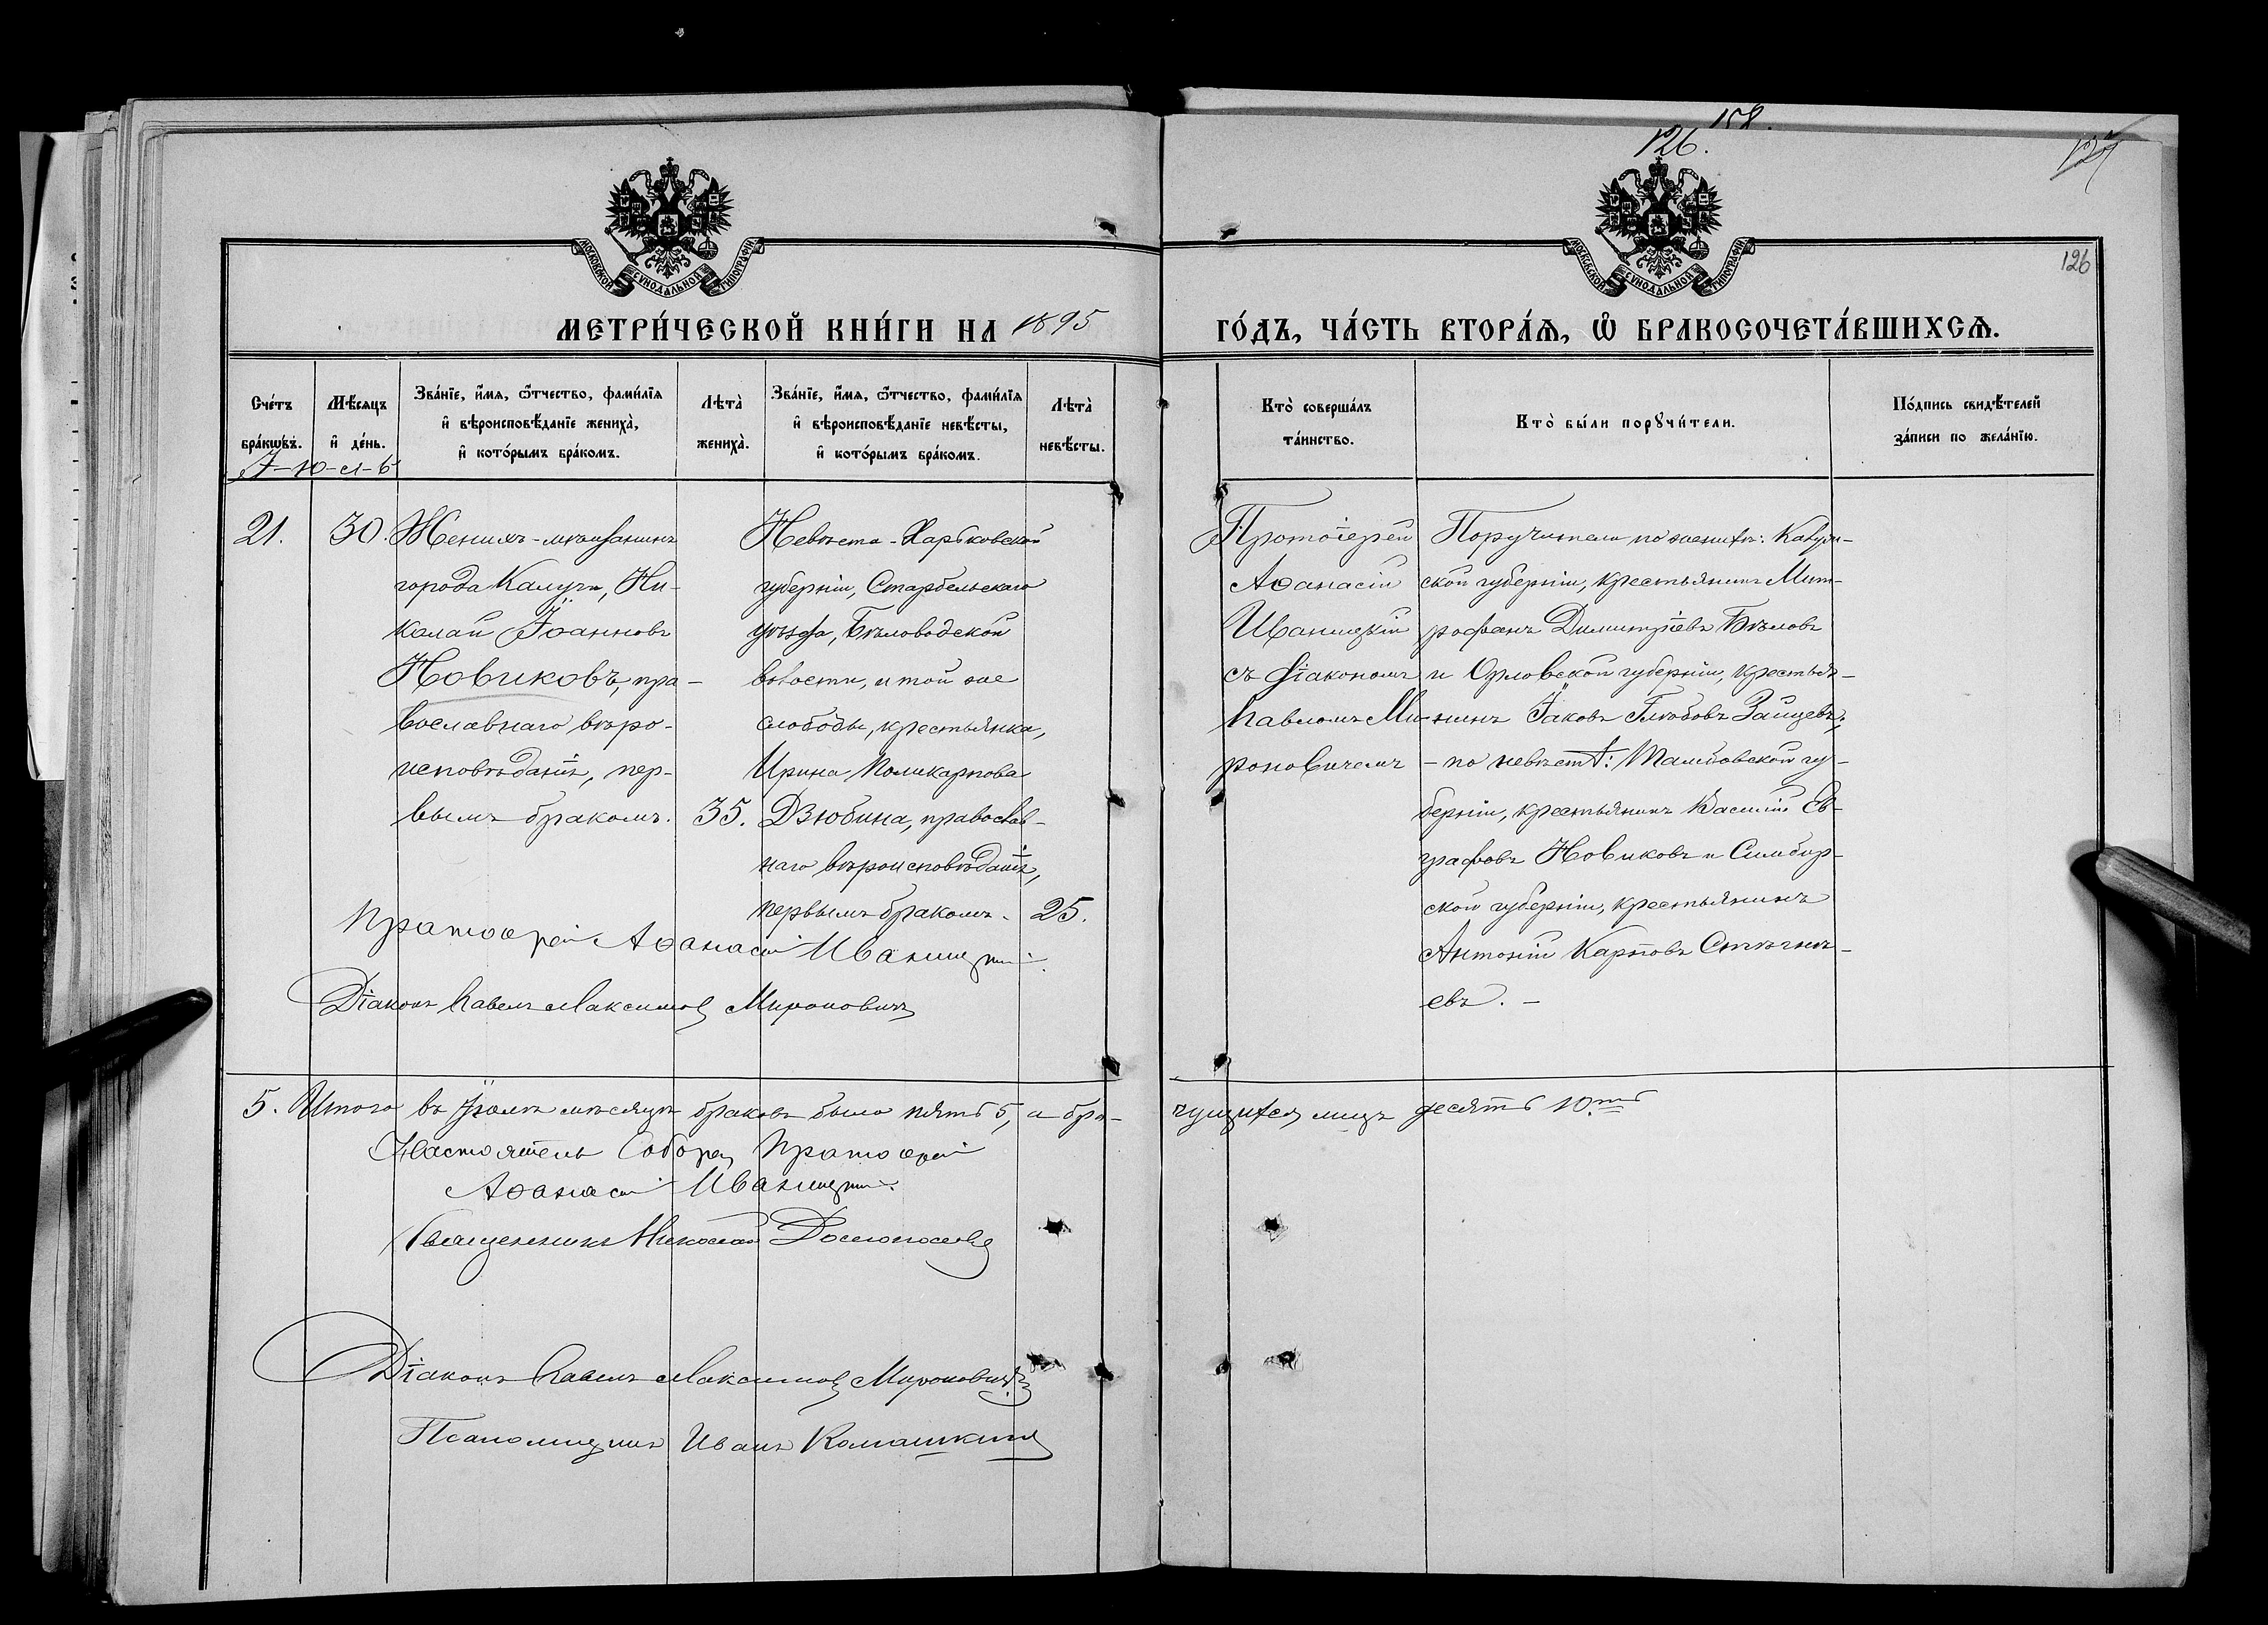 158.
126.
127
126
МОСКОВСКОЙ СѴНОДАЛЬНОЙ ТИПОГРАФІИ
МОСКОВСКОЙ СѴНОДАЛЬНОЙ ТИПОГРАФІИ
МЕТРИ́ЧЕСКОЙ КНИ́ГИ НА 1895
ГО́ДЪ, ЧА́СТЬ ВТОРА́Ѧ, Ѡ҆ БРАКОСОЧЕТА́ВШИХСѦ.
Сче́тъ
бра́кѡвъ.
Мѣ́сяцъ
и҆ де́нь.
Зва́нїе, и҆́мѧ, ѻ҆́тчество, фами́лїѧ
и҆ вѣроисповѣ́данїе жениха̀,
и҆ кото́рымъ бра́комъ.
Лѣта̀
жениха̀.
Зва́нїе, и҆́мѧ, ѻ҆́тчество, фами́лїѧ
и҆ вѣроисповѣ́данїе невѣ́сты,
и҆ кото́рымъ бра́комъ.
Лѣта̀
невѣ́сты.
Кто̀ соверша́лъ
та́инство.
Кто̀ бы́ли порꙋчи́тели.
По́дпись свидѣ́телей
за́писи по жела́нїю.
І-ю-л-ь
21.
30.
Женихъ - мѣщанинъ
города Калуги, Ни-
колай Іоанновъ
Новиковъ, пра-
вославнаго вѣро-
исповѣданія, пер-
вымъ бракомъ.
35.
Невѣста - Харьковской
губерніи, Старобельскаго
уѣзда, Бѣловодской
волости, и той же
слободы, крестьянка,
Ирина Поликарпова
Дзюбина, православ-
наго вѣроисповѣданія,
первымъ бракомъ.
25.
Протоіерей
Аѳанасій
Иваницкій
съ діакономъ
Павломъ Ми-
роновичемъ
Поручители по женихѣ: Калуж-
ской губерніи, крестьянинъ Мит-
рофанъ Димитріевъ Бѣловъ
и Орловской губерніи, крестья-
нинъ Іаковъ Глѣбовъ Зайцевъ;
- по невѣстѣ: Тамбовской гу-
берніи, крестьянинъ Василій Ев-
графовъ Новиковъ и Симбир-
ской губерніи, крестьянинъ
Антоній Карповъ
евъ. -
Протоіерей Аѳанасій Иваницкій.
Діаконъ Павелъ Максимовъ Мироновичъ
5. Итого въ Іюлѣ мѣсяцѣ браковъ было пять 5, а бра-
чущихся лицъ десять 10.ть
Настоятель Собора, Протоіерей
Аѳанасій Иваницкій.
Священникъ Николай
Діаконъ Павелъ Максимовъ Мироновичъ
Псаломщикъ Иванъ Комашкинъ